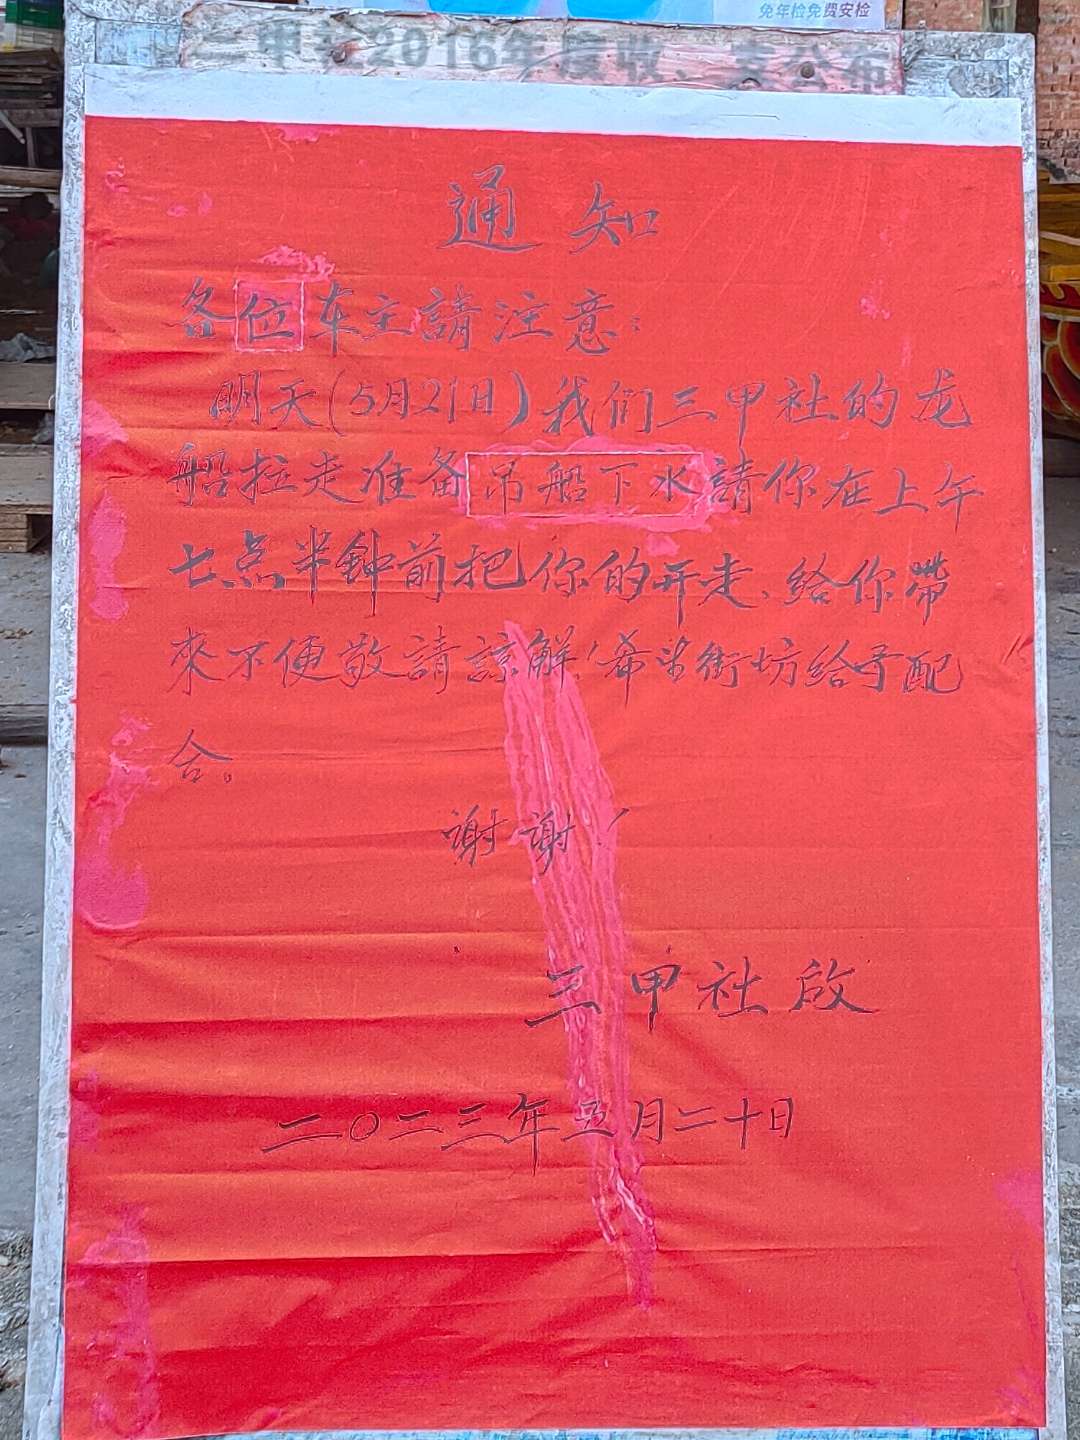 免年检免费安检
甲社2016年度收、支公布
通知
各位车主請注意:
明天(5月21日)我们三甲社的龙
船拉走准备吊船下水請你在上午
七点半鐘前把你的开走、给你帶
來不便敬請諒解!希望街坊给予配
合。
谢谢!
三甲社啟
二〇二三年五月二十日